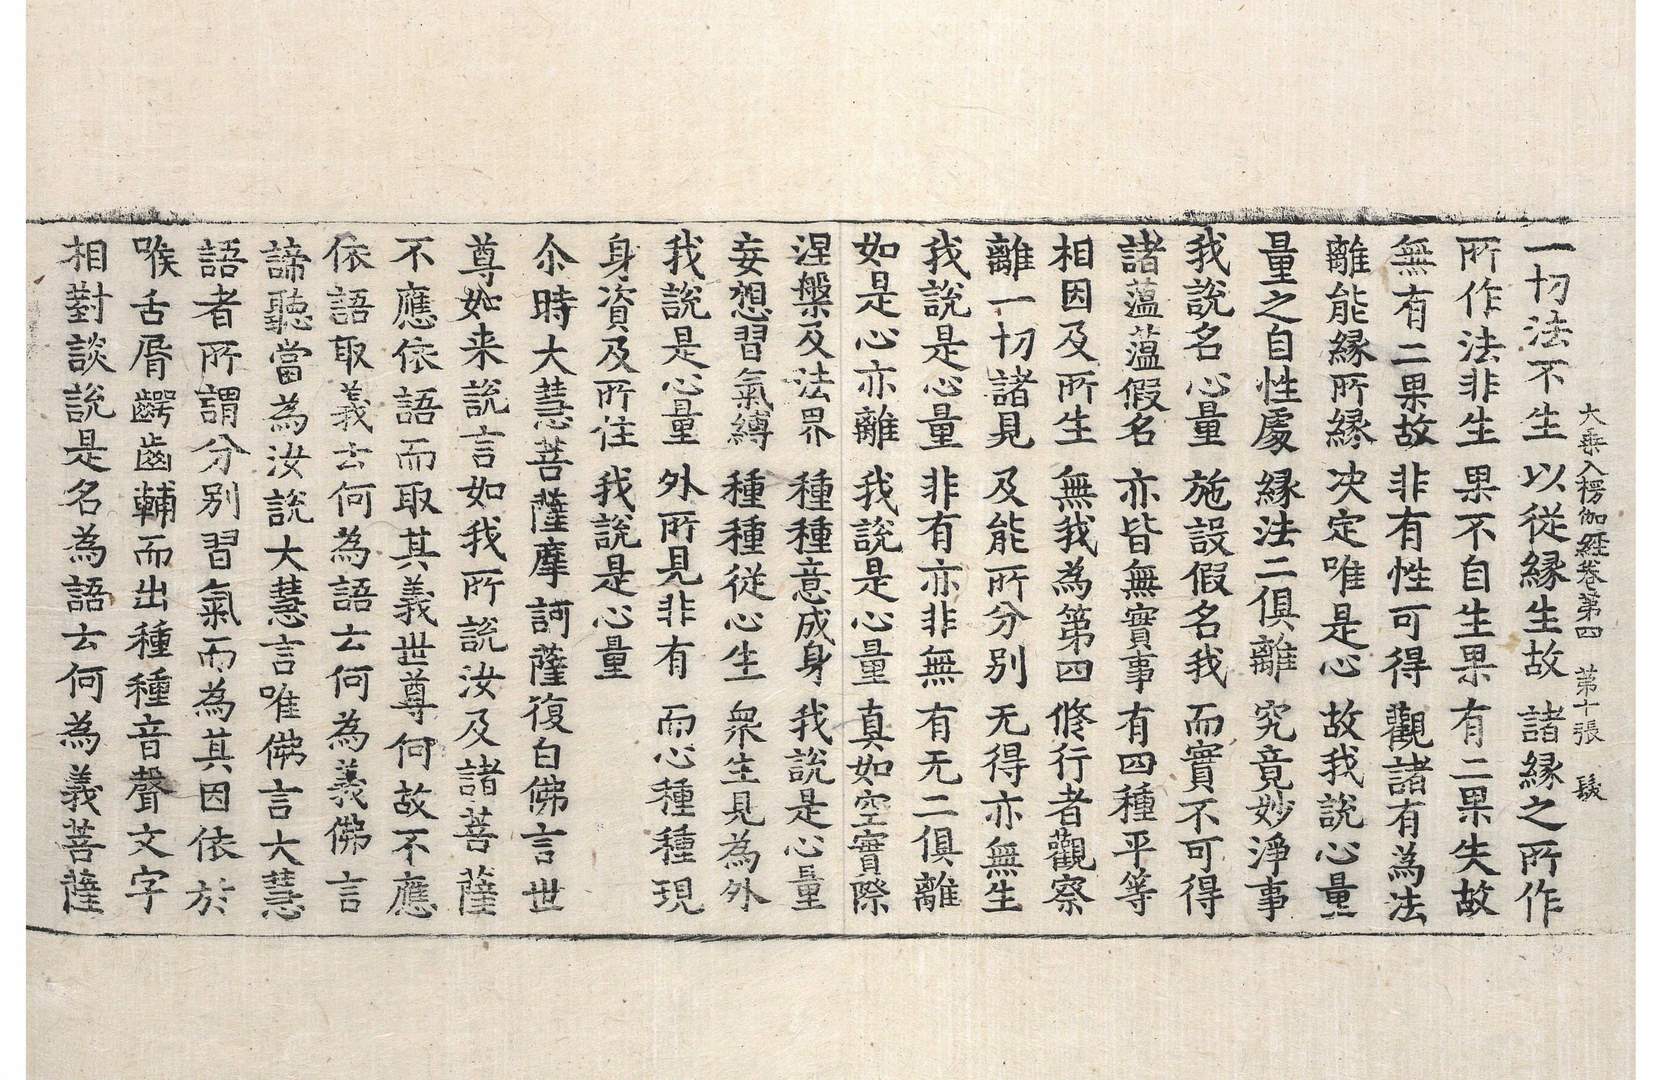 大乗入楞伽經卷第四 第十張 髮
一切法不生 以從緣生故 諸緣之所作
所作法非生 果不自生果 有二果失故
無有二果故 非有性可得 觀諸有為法
離能緣所緣 决定唯是心 故我說心量
量之自性處 緣法二俱離 究竟妙淨事
我說名心量 施設假名我 而實不可得
諸薀薀假名 亦皆無實事 有四種平等
相因及所生 無我為第四 修行者觀察
離一切諸見 及能所分別 无得亦無生
我說是心量 非有亦非無 有无二俱離
如是心亦離 我說是心量 真如空實際
涅槃及法界 種種意成身 我說是心量
妄想習氣縛 種種從心生 衆生見為外
我說是心量 外所見非有 而心種種現
身資及所住 我說是心量
尒時大慧菩薩摩訶薩復白佛言世
尊如来說言如我所說汝及諸菩薩
不應依語而取其義世尊何故不應
依語取義云何為語云何為義佛言
諦聽當為汝說大慧言唯佛言大慧
語者所謂分別習氣而為其因依於
喉舌脣齶齒輔而出種種音聲文字
相對談說是名為語云何為義菩薩